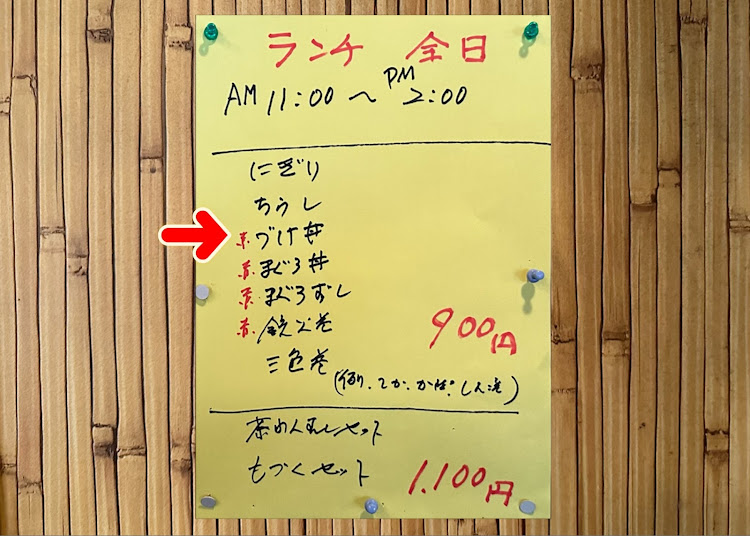 ランチ 全日
AM 11:00 〜 PM 2:00
にぎり
ちらし
赤 づけ丼
赤 まぐろ丼
赤 まぐろずし
赤 鉄火巻
三色巻
900円
茶わんむしセット
もづくセット
1.100円